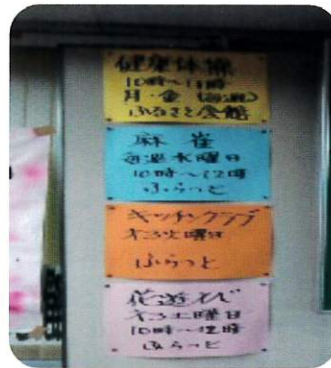 健康体操
10時〜11時
月・金(毎週)
ふるさと会館
麻雀
毎週水曜日
10時〜12時
ふらっと
キッチンクラブ
オ3火曜日
ふらっと
花遊び
オ3土曜日
10時〜12時
ふらっと